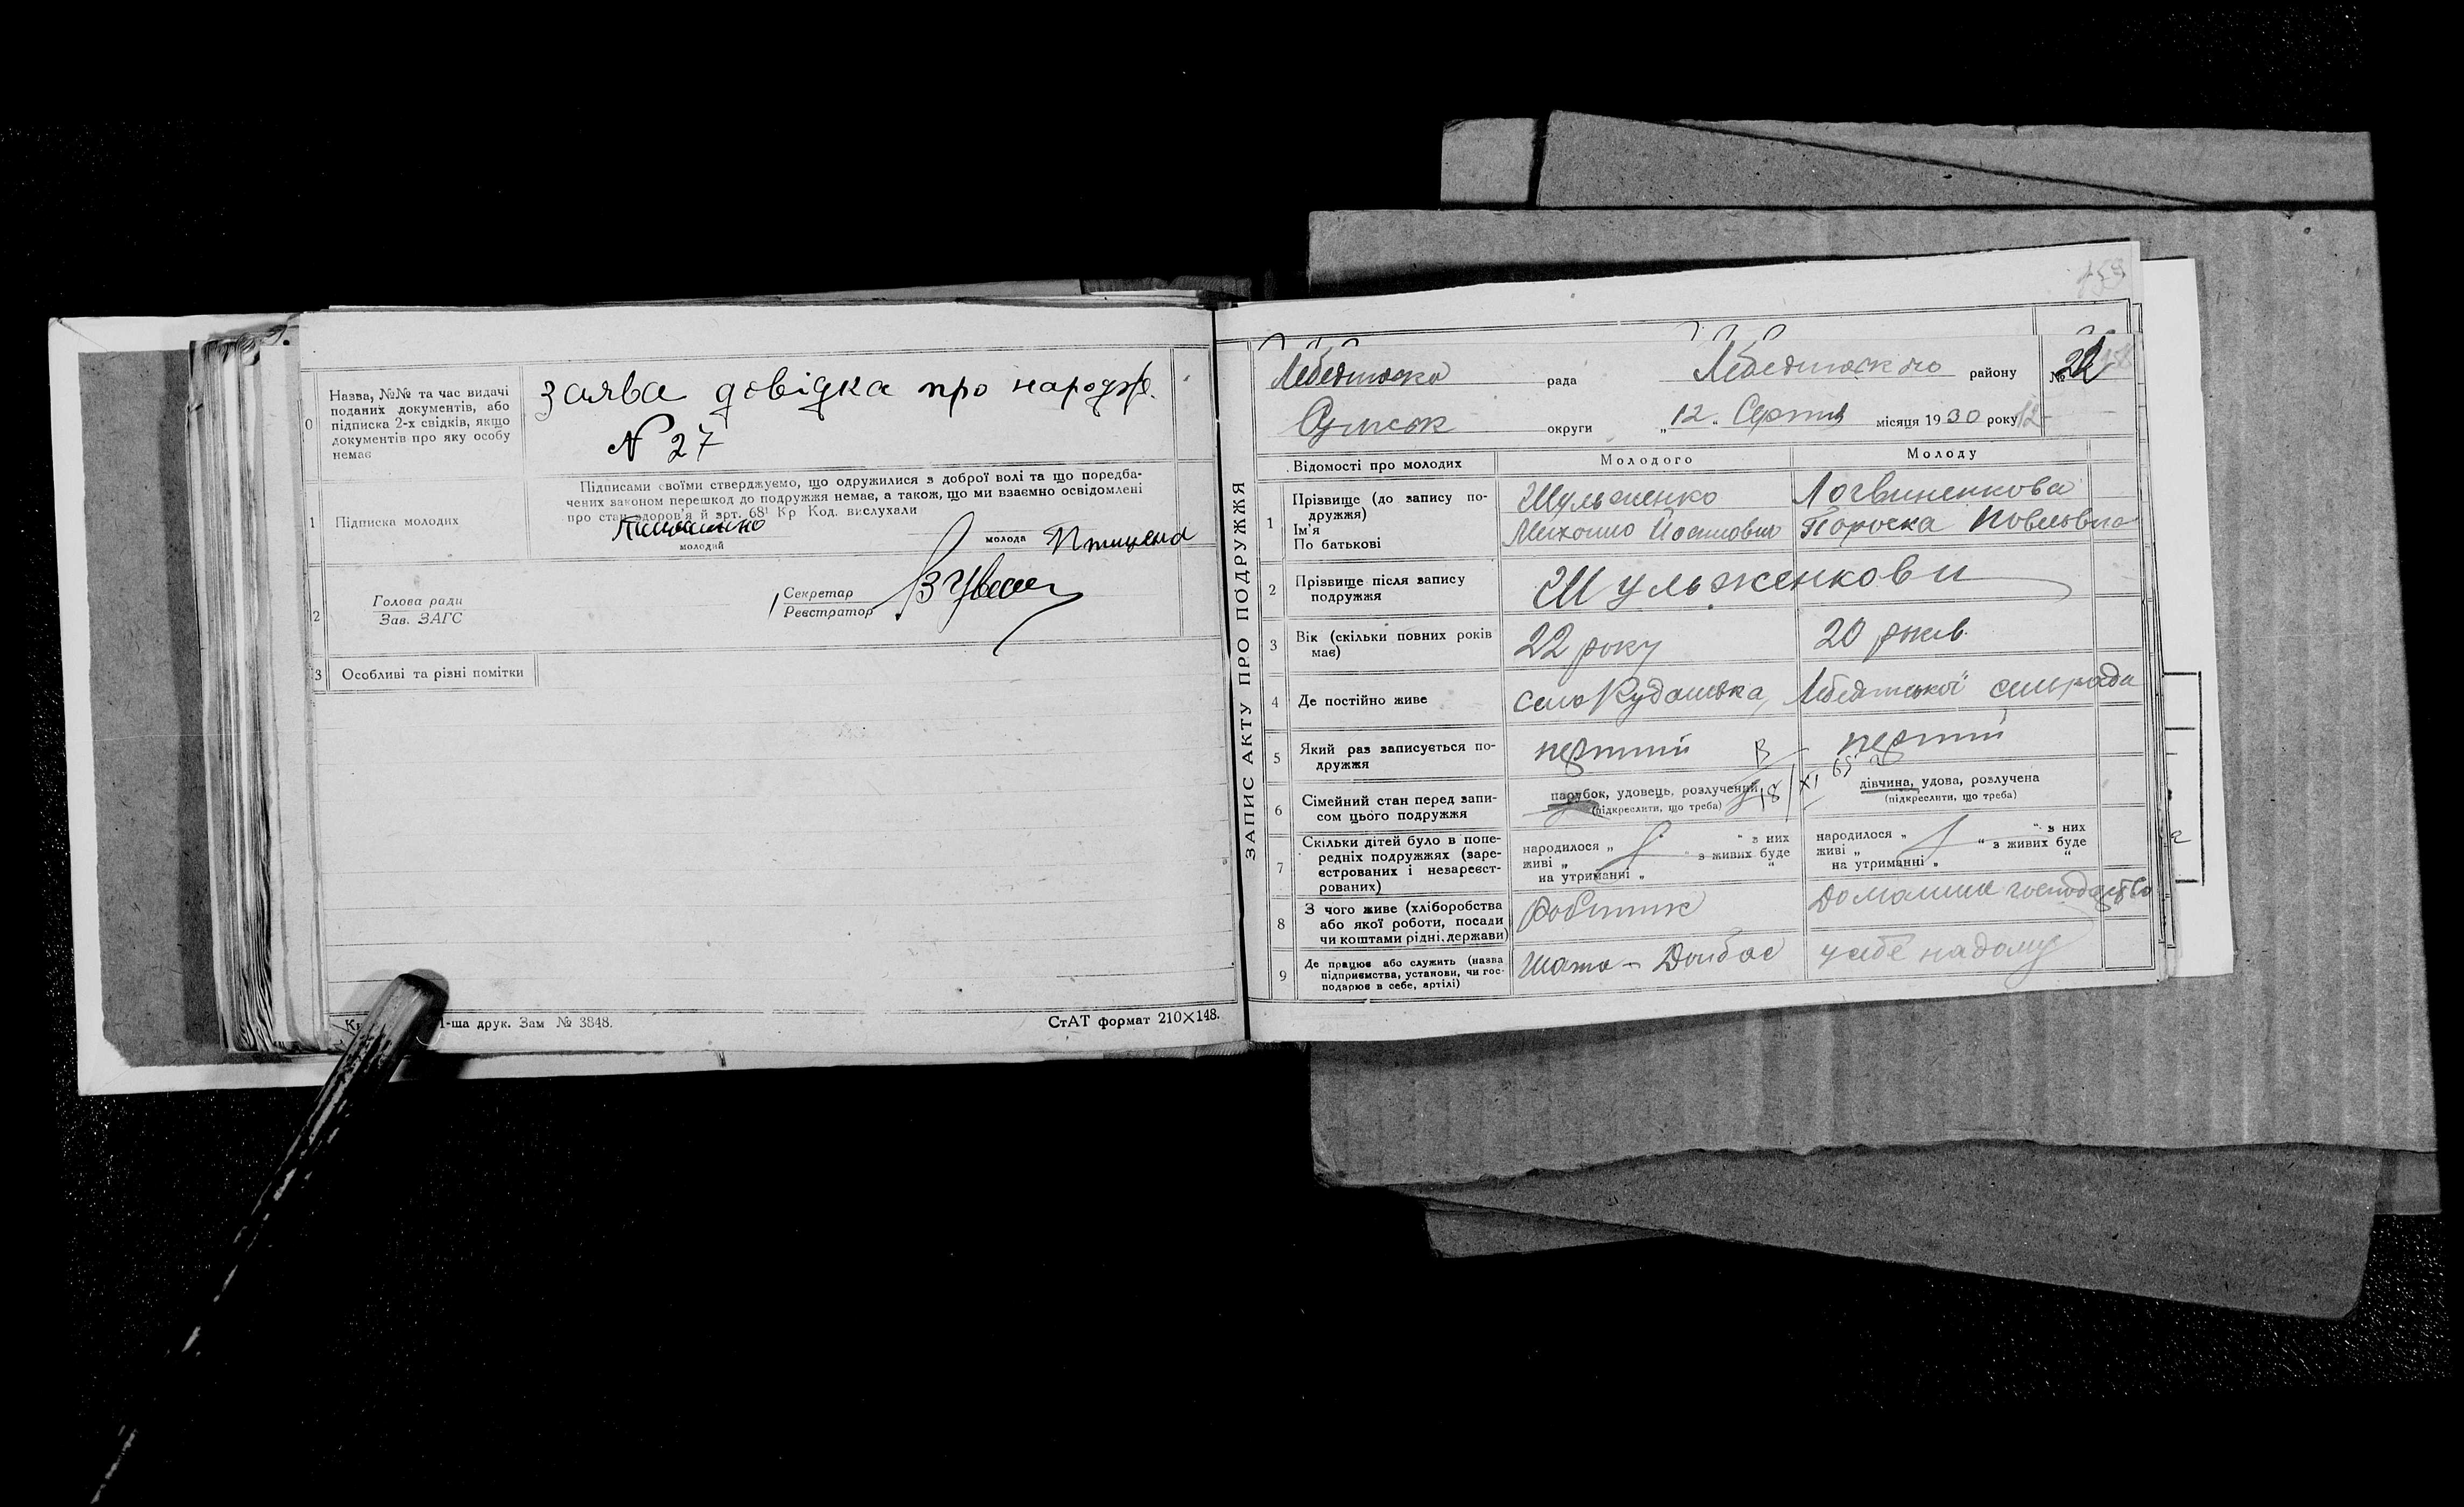 0 Назва, №№ та час видачі
поданих документів, або
підписка 2-х свідків, якщо
документів про яку особу
немає
заява довідка про народж.
N 27
1 Підписка молодих
Підписами своїми стверджуємо, що одружилися з доброї волі та що поредба-
чених законом перешкод до подружжя немає, а також, що ми взаємно освідомлені
про стан здоров'я й арт. 68¹ Кр Код. вислухали
молодий
молода Птицена
2 Голова ради
Зав. ЗАГС
Секретар
Реєстратор
3 Особливі та різні помітки
1-ша друк. Зам № 3848.
СтАТ формат 210×148.
159
ЗАПИС АКТУ ПРО ПОДРУЖЖЯ
Лебединська рада Лебединського району №
Сумськ округи „12„ Серпня місяця 1930 року
Відомості про молодих Молодого Молоду
1 Прізвище (до запису по-
дружжя)
Ім'я
По батькові
Шульженко
Михайло Йосипович
Логвиненкова
Параска Павлівна
2 Прізвище після запису
подружжя
Шульженкови
3 Вік (скільки повних років
має)
22 року 20 років
4 Де постійно живе
село Кудашівка, Лебединської сельради
5 Який раз записується по-
дружжя
перший перший
6 Сімейний стан перед запи-
сом цього подружжя
парубок, удовець, розлучений
(підкреслити, що треба)
18/XI 65
дівчина, удова, розлучена
(підкреслити, що треба)
7 Скільки дітей було в попе-
редніх подружжях (заре-
єстрованих і незареєст-
рованих)
народилося „ “ з них
живі „ “ з живих буде
на утриманні „ “
народилося „ “ з них
живі „ “ з живих буде
на утриманні „ “
8 З чого живе (хліборобства
або якої роботи, посади
чи коштами рідні, держави)
Робитник
Домашнє господарство
9 Де працює або служить (назва
підприємства, установи, чи гос-
подарює в себе, артілі)
Шахта – Донбас
у себе надому